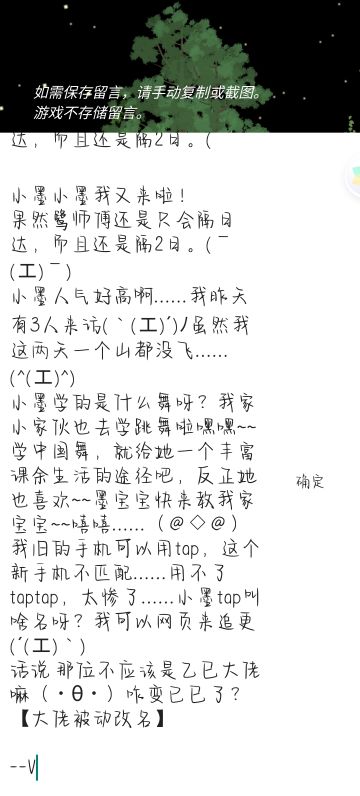 如需保存留言，请手动复制或截图。
游戏不存储留言。
达，而且还是隔2日。(
小墨小墨我又来啦！
果然鹭师傅还是只会隔日
达，而且还是隔2日。(￣
(工)￣)
小墨人气好高啊……我昨天
有3人来访(｀(工)´)ﾉ虽然我
这两天一个山都没飞……
(^(工)^)
小墨学的是什么舞呀？我家
小家伙也去学跳舞啦嘿嘿~~
学中国舞，就给她一个丰富
课余生活的途径吧，反正她
也喜欢~~墨宝宝快来教我家
宝宝~~嘻嘻……（@◇@）
我旧的手机可以用tap，这个
新手机不匹配……用不了
taptap，太惨了……小墨tap叫
啥名呀？我可以网页来追更
(´(工)｀)
话说那位不应该是乙已大佬
嘛（・θ・）咋变已已了？
【大佬被动改名】
--V
确定